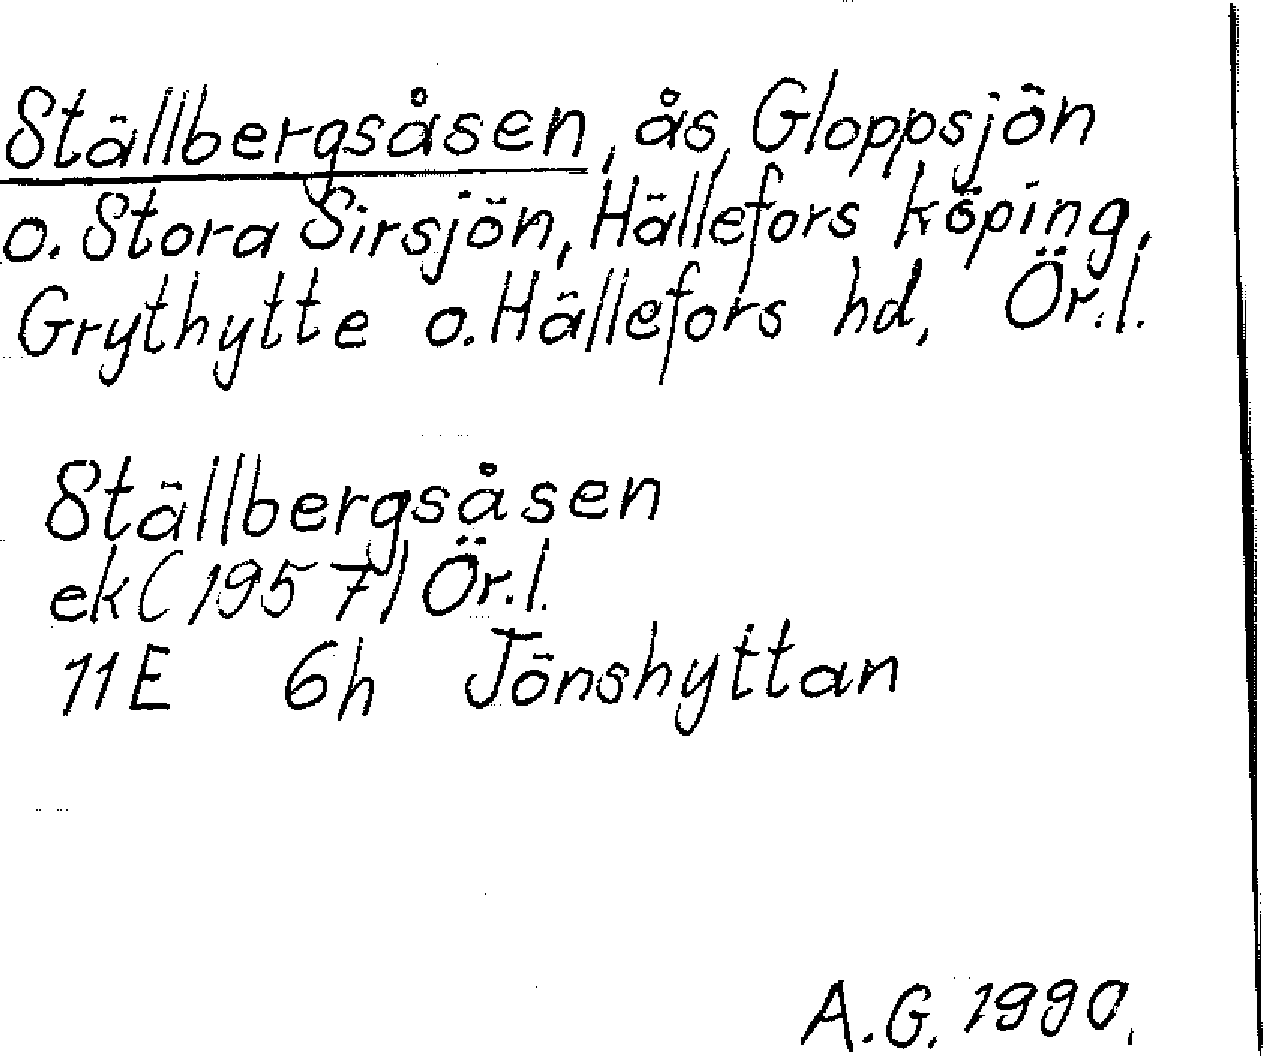 Ställbergsåsen, ås, Gloppsjön
o. Stora Sirsjön, Hällefors köping,
Grythytte o. Hällefors hd, Ör.l.
Ställbergsåsen
ek (1957) Ör.l.
11E 6h Jönshyttan
A.G. 1990.